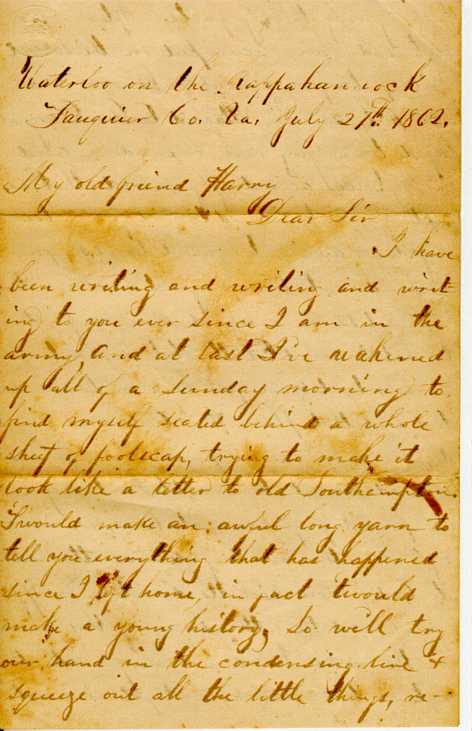 Waterloo on the Rappahannock
Fauquier Co. Va. July 27th 1862.
My old friend Harry
Dear Sir
I have
been writing and writing and writ
ing to you ever since I am in the
army and at last I've wakened
up all of a Sunday morning to
find myself seated behind a whole
sheet of foolscap, trying to make it
look like a letter to old Southampton.
Twould make an awful long yarn to
tell you everything that has happened
since I left home, in fact twould
make a young history, So we'll try
our hand in the condensing line &
squeeze out all the little things, re-